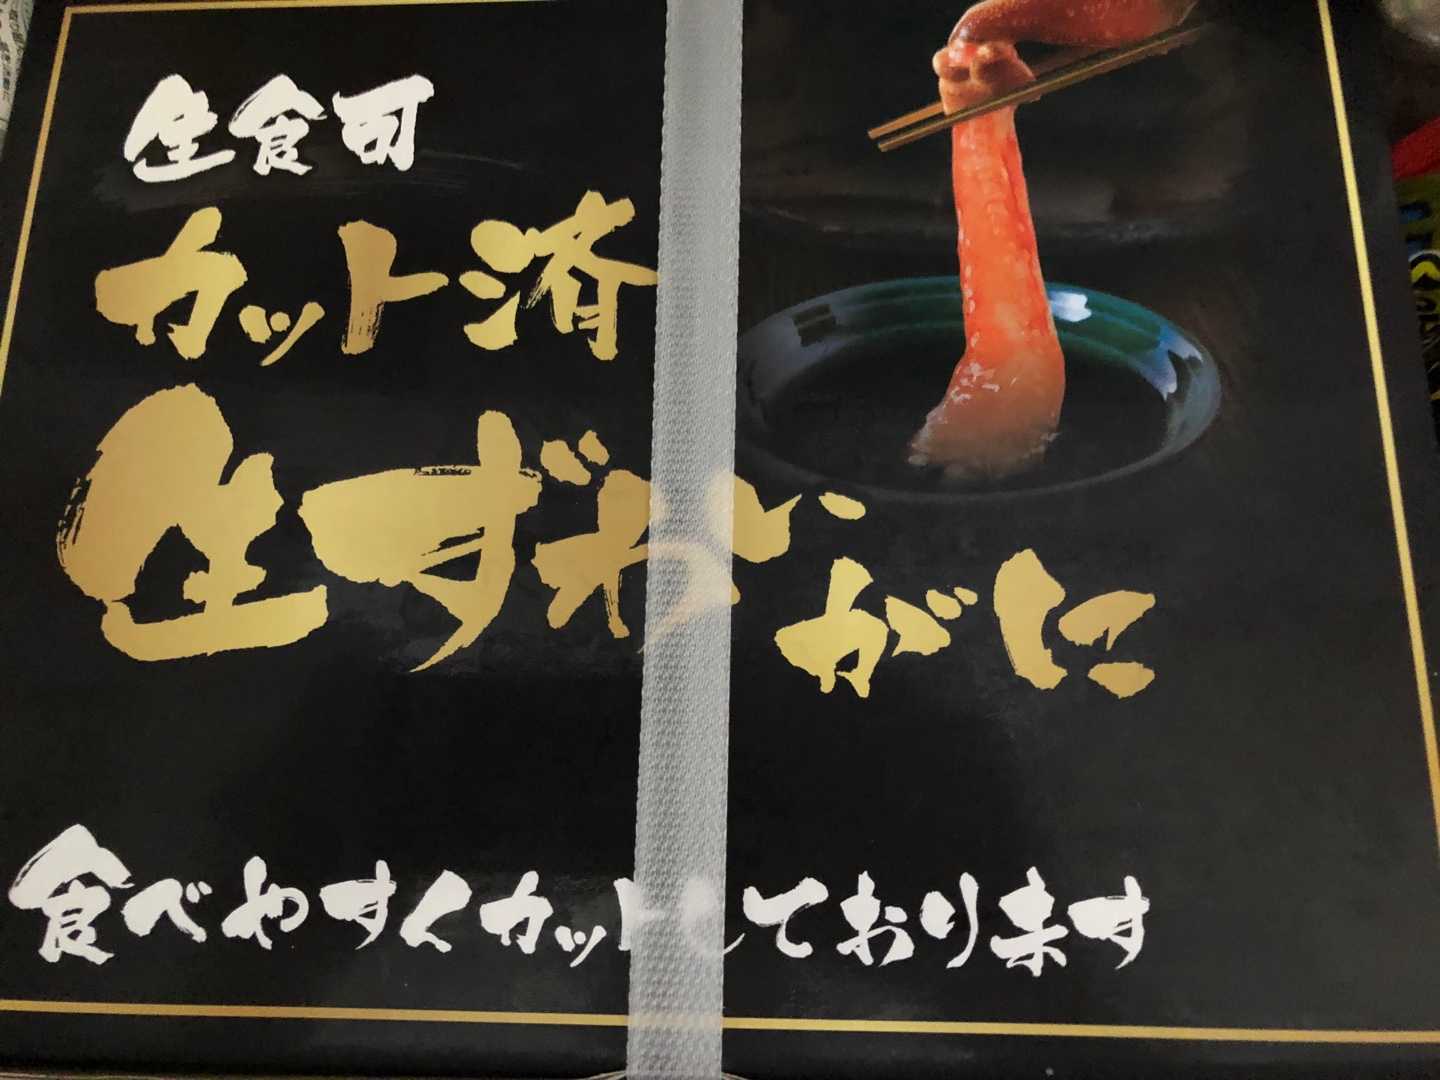 生食可
カット済
生ずわいがに
食べやすくカットしております